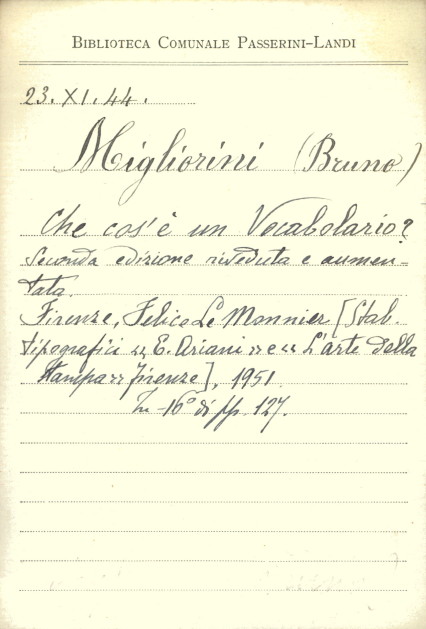 BIBLIOTECA COMUNALE PASSERINI-LANDI
23. XI. 44.
Migliorini (Bruno)
Che cos'è un Vocabolario?
Seconda edizione riveduta e aumen-
tata.
Firenze, Felice Le Monnier [Stab.
tipografici „E. Ariani" e „L'arte della
stampa" Firenze], 1951.
In-16° di pp. 127.